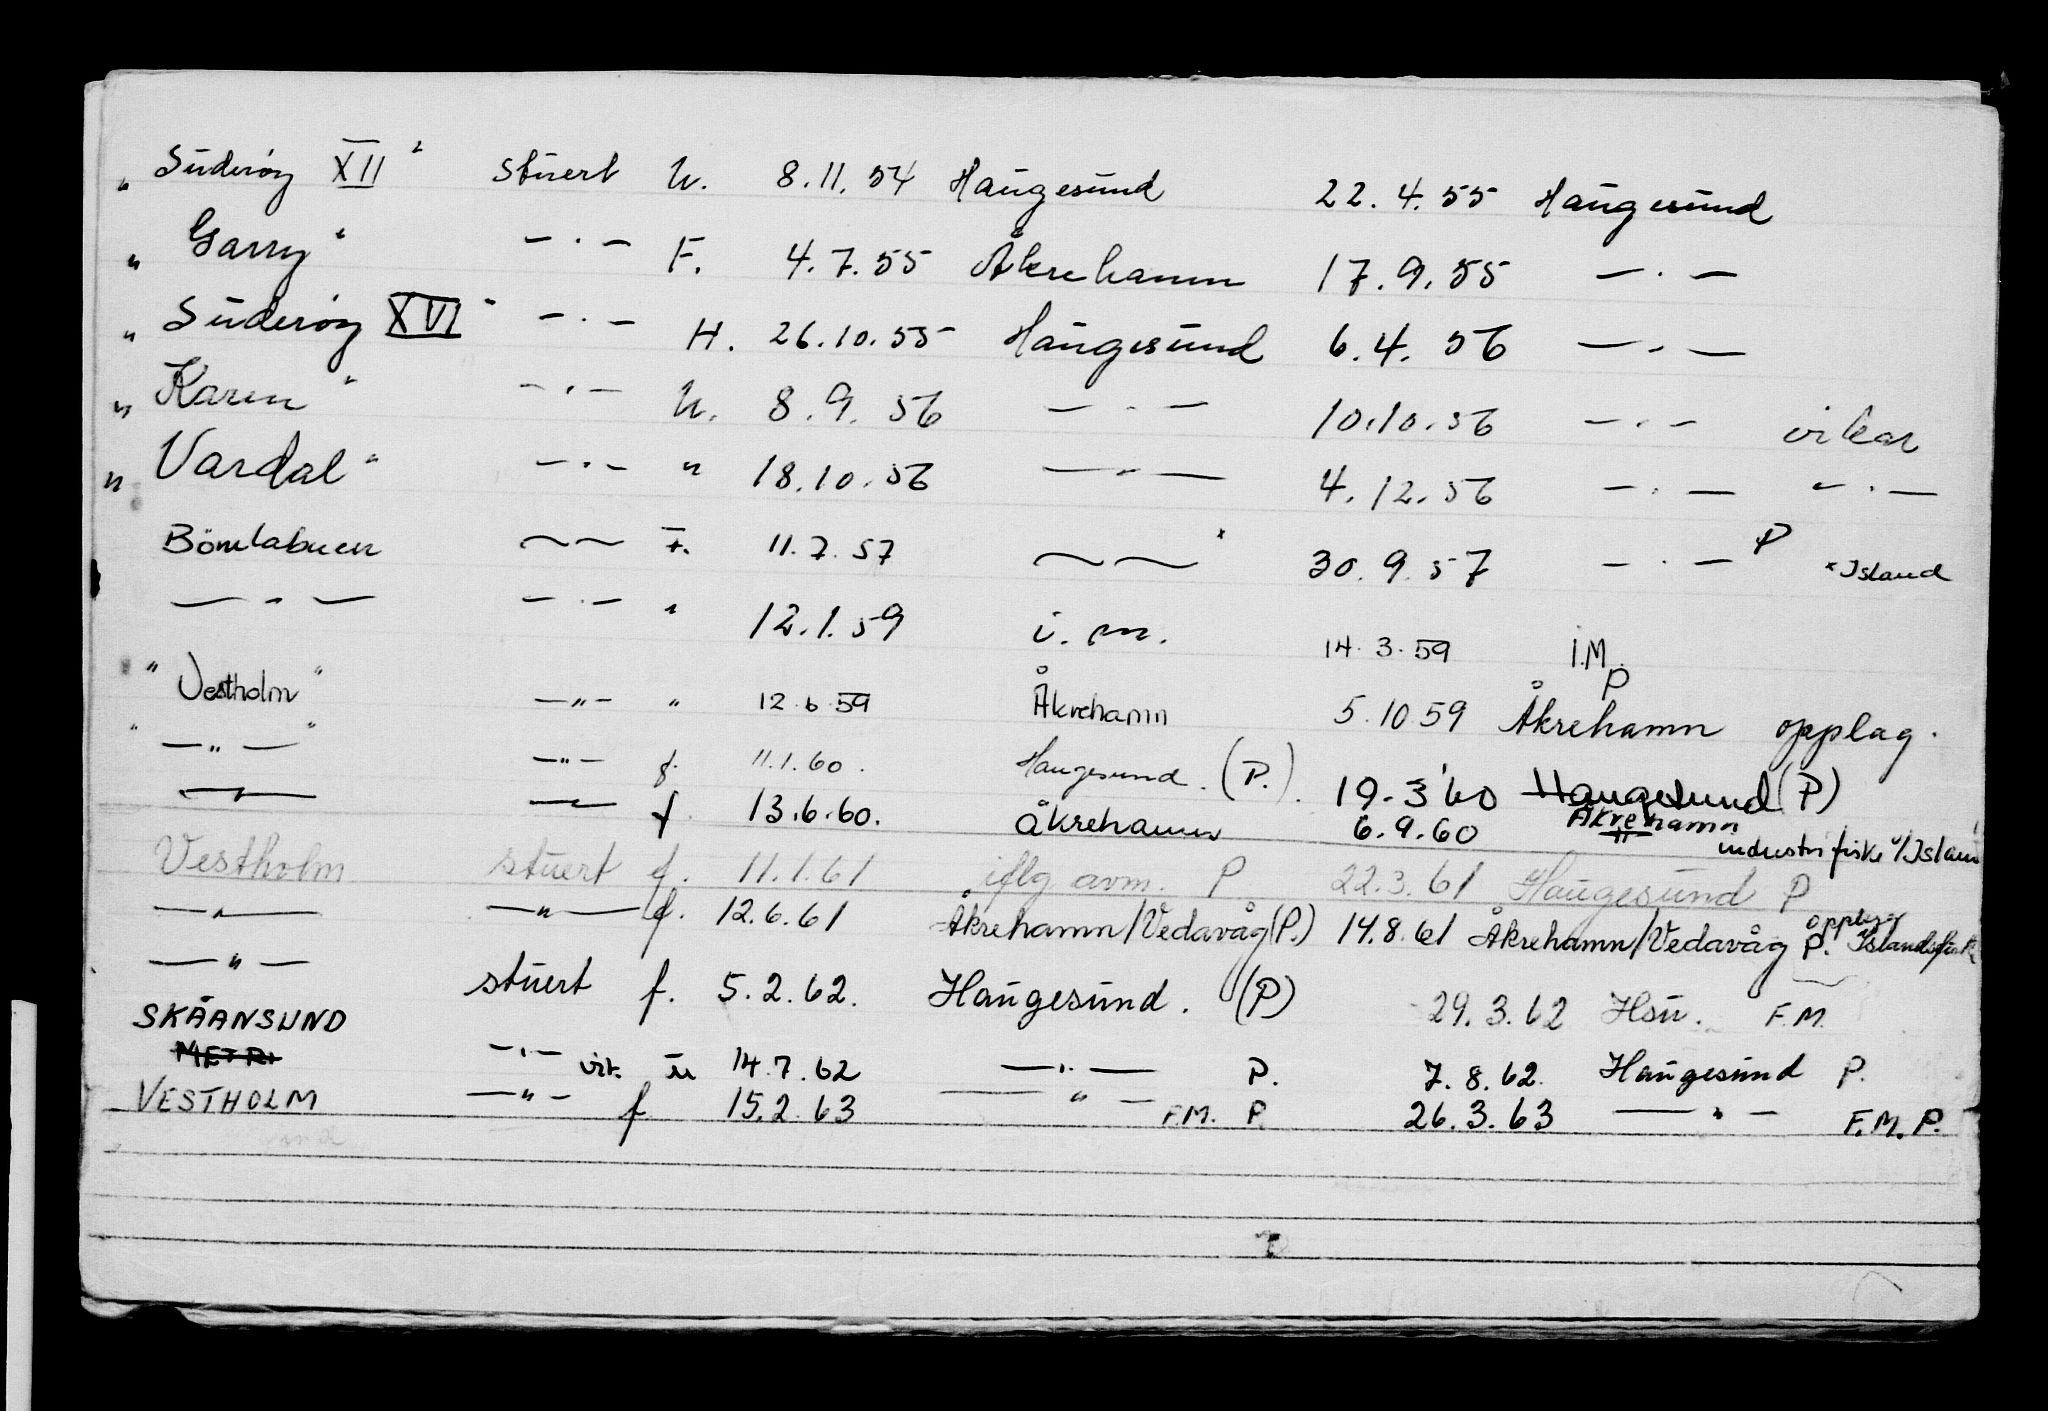 " Suderöy XII " stuert U. 8.11.54 Haugesund 22.4.55 Haugesund
" Garry " — · — F. 4.7.55 Åkrehamn 17.9.55 — · —
" Suderöy XVI " — · — H. 26.10.55 Haugesund 6.4.56 — · —
" Karen " — · — U. 8.9.56 — · — 10.10.56 — · — vikar
" Vardal " — · — " 18.10.56 — " — 4.12.56 — · — — · —
Bömlabuen — — F. 11.7.57 — — x 30.9.57 — · — P x Island
— " — — · — " 12.1.59 i.m. 14.3.59 I.M.
" Vestholm " — " — " 12.6.59 Åkrehamn 5.10 59 Åkrehamn P opplag.
" — " — " — " — f. 11.1.60. Haugesund. (P.). 19.3.60 Haugesund (P)
— " — — " — f. 13.6.60. Åkrehamn 6.9.60 Åkrehamn industrifiske v/Island
Vestholm stuert f. 11.1.61 iflg avm. P 22.3.61 Haugesund P
— " — — " — f. 12.6.61 Åkrehamn/Vedavåg (P.) 14.8.61 Åkrehamn/Vedavåg P. opplag Islandsfisk
— " — stuert f. 5.2.62. Haugesund. (P) 29.3.62 Hsu. F.M.
SKÅANSUND — · — vik. u 14.7.62 — · — P. 7.8.62. Haugesund P.
VESTHOLM — " — f 15.2.63 — " — F.M. P. 26.3.63 — " — F.M.P.